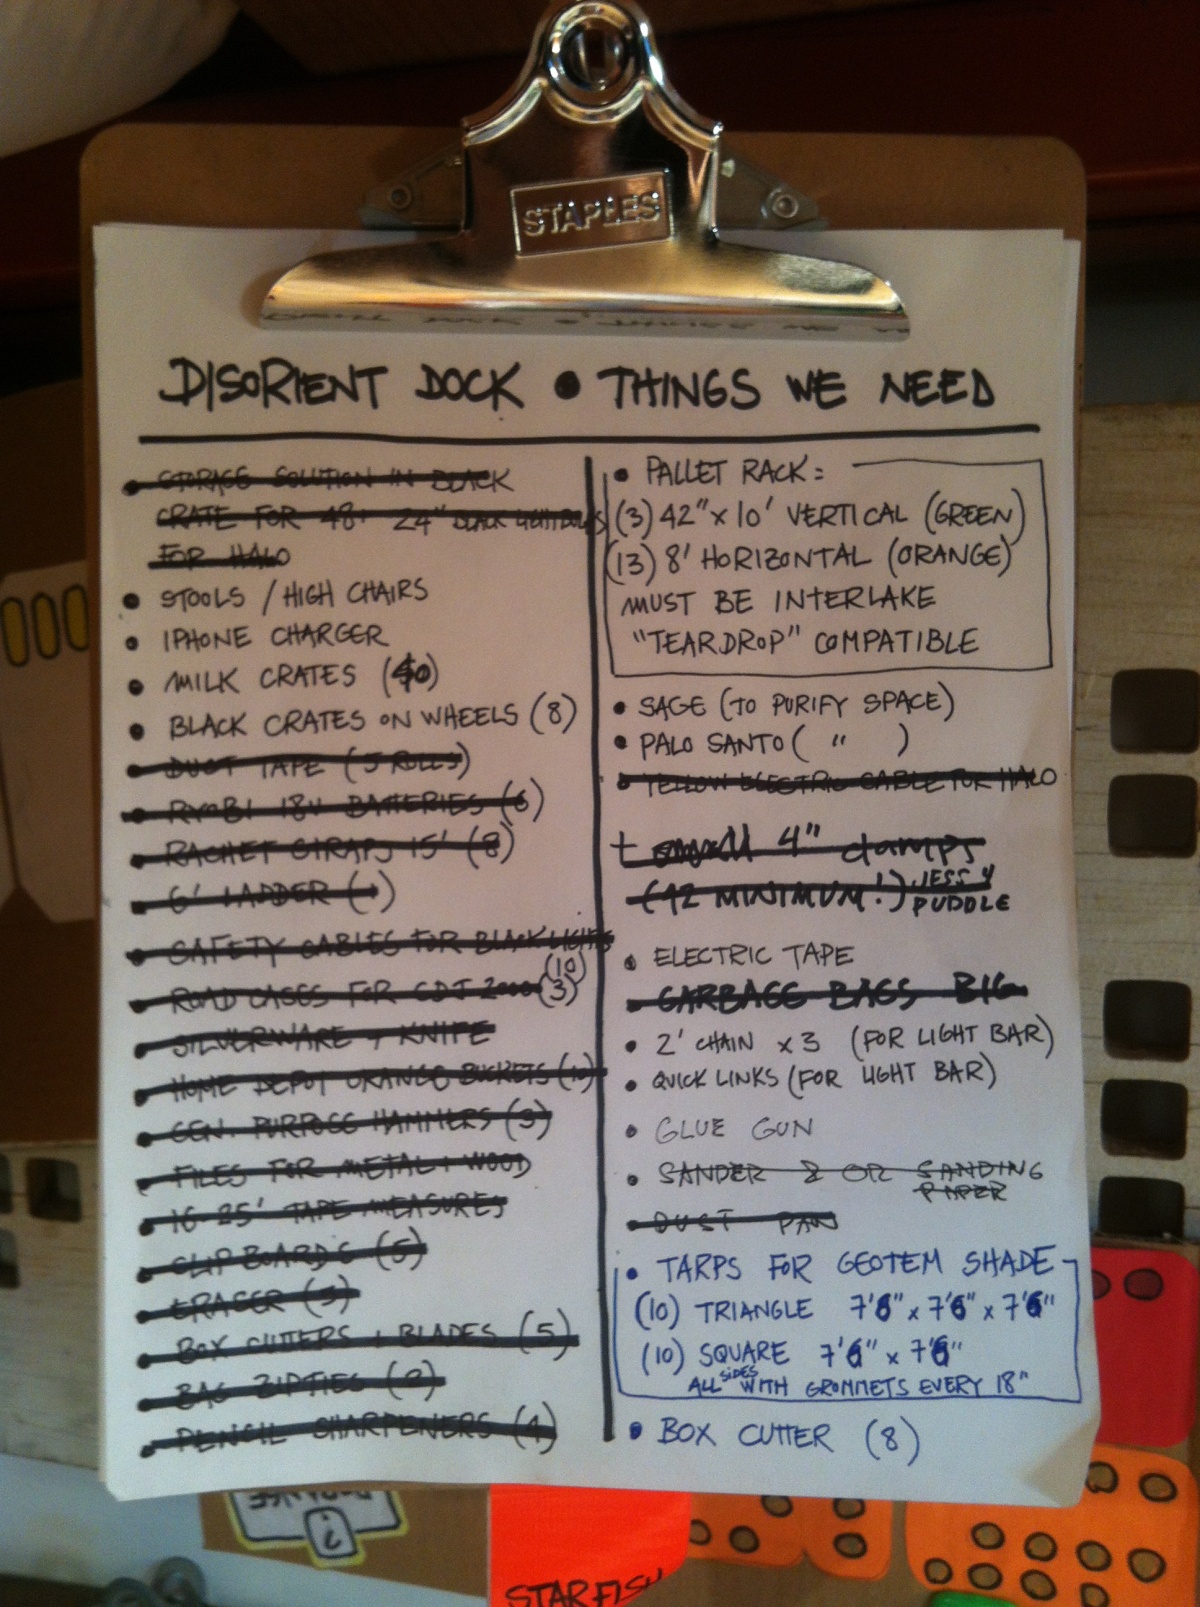 STAPLES
DISORIENT DOCK • THINGS WE NEED
• STORAGE SOLUTION IN BLACK
CRATE FOR 48+ 24" BLACK LIGHT BULBS
FOR HALO
• STOOLS / HIGH CHAIRS
• IPHONE CHARGER
• MILK CRATES (40)
• BLACK CRATES ON WHEELS (8)
• DUCT TAPE (5 ROLLS)
• RYOBI 18V BATTERIES (6)
• RACHET STRAPS 15' (8)
• 6' LADDER (1)
• SAFETY CABLES FOR BLACK LIGHTS
(10)
• ROAD CASES FOR CDJ 2000 (3)
• SILVERWARE + KNIFE
• HOME DEPOT ORANGE BUCKETS (10)
• GEN. PURPOSE HAMMERS (3)
• FILES FOR METAL + WOOD
• 16-25' TAPE MEASURES
• CLIPBOARDS (5)
• ERASER (5)
• BOX CUTTERS + BLADES (5)
• BAG ZIPTIES
• PENCIL SHARPENERS (4)
• PALLET RACK:
(3) 42" x 10' VERTICAL (GREEN)
(13) 8' HORIZONTAL (ORANGE)
MUST BE INTERLAKE
"TEARDROP" COMPATIBLE
• SAGE (TO PURIFY SPACE)
• PALO SANTO ( " )
• YELLOW ELECTRIC CABLE FOR HALO
small 4" clamps
(42 MINIMUM!) JESS Y
PUDDLE
• ELECTRIC TAPE
• GARBAGE BAGS BIG
• 2' CHAIN x 3 (FOR LIGHT BAR)
• QUICK LINKS (FOR LIGHT BAR)
• GLUE GUN
• SANDER & OR SANDING
PAPER
• DUST PAN
• TARPS FOR GEOTEM SHADE
(10) TRIANGLE 7'6" x 7'6" x 7'6"
(10) SQUARE 7'6" x 7'6"
ALL SIDES WITH GROMMETS EVERY 18"
• BOX CUTTER (8)
STARFISH